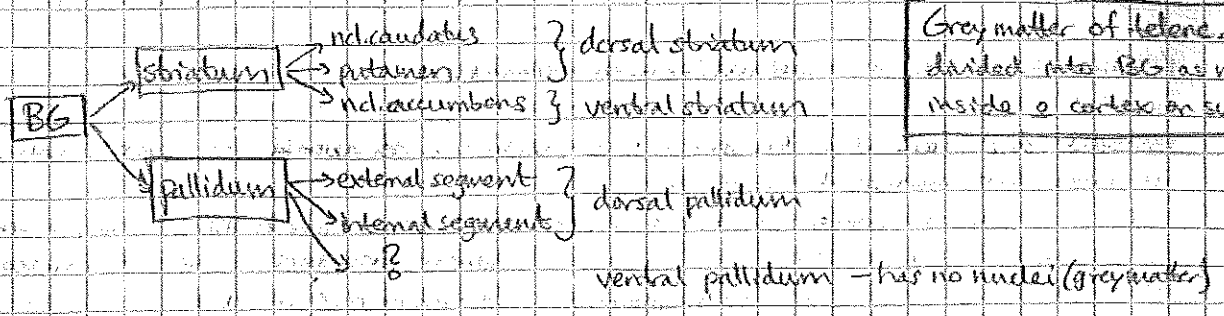 BG
striatum
ncl.caudatus
putamen
ncl.accumbens
} dorsal striatum
} ventral striatum
pallidum
external segment
internal segment
?
} dorsal pallidum
ventral pallidum – has no nuclei (grey matter)
Grey matter of telence
divided into BG as
inside & cortex on